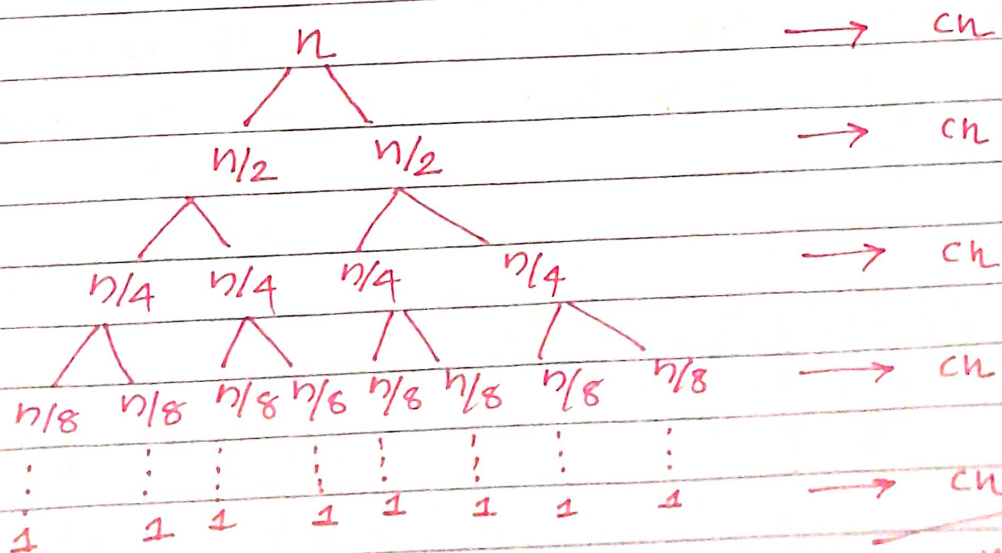 n → cn
n/2 n/2 → cn
n/4 n/4 n/4 n/4 → cn
n/8 n/8 n/8 n/8 n/8 n/8 n/8 n/8 → cn
1 1 1 1 1 1 1 1 → cn